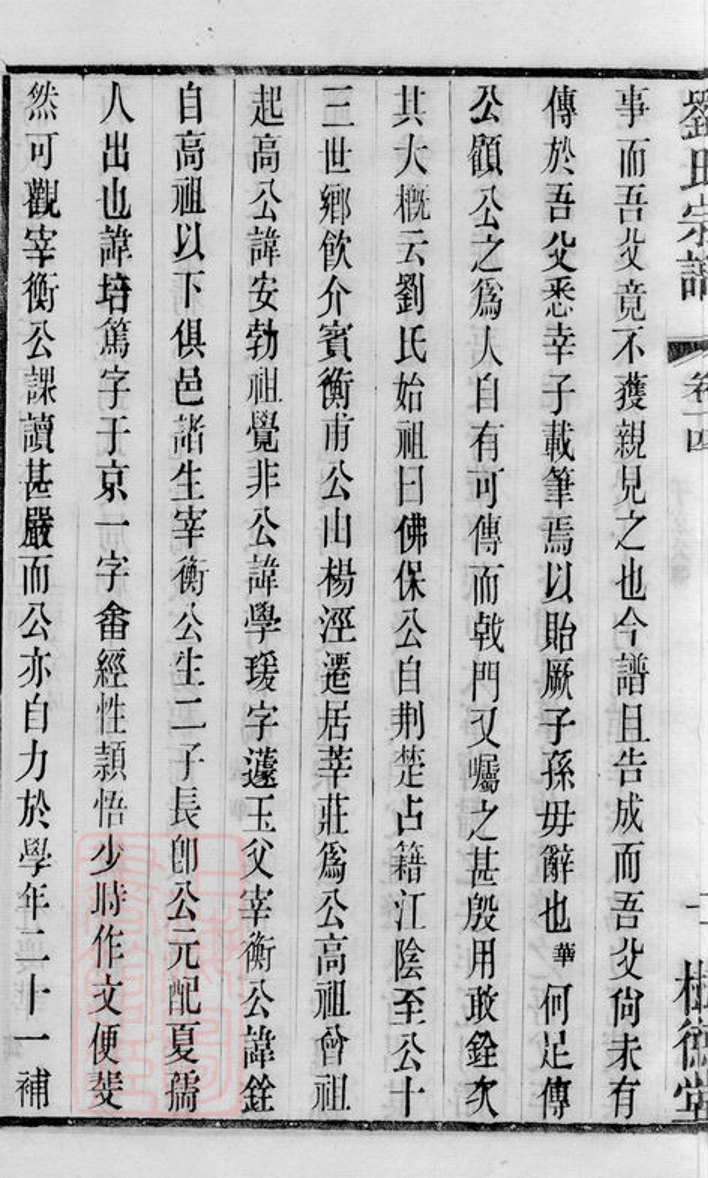 劉氏宗譜 卷十四
事而吾父竟不獲親見之也今譜且告成而吾父尙未有
傳於吾父悉幸子載筆焉以貽厥子孫毋辭也華何足傳
公顧公之爲人自有可傳而戟門又囑之甚殷用敢銓次
其大槪云劉氏始祖曰佛保公自荆楚占籍江陰至公十
三世鄉飮介賓衡甫公山楊涇遷居莘莊爲公高祖曾祖
起高公諱安勃祖覺非公諱學瑗字蘧玉父宰衡公諱銓
自高祖以下俱邑諸生宰衡公生二子長卽公元配夏孺
人出也諱培篤字于京一字畬經性頴悟少時作文便斐
然可觀宰衡公課讀甚嚴而公亦自力於學年二十一補